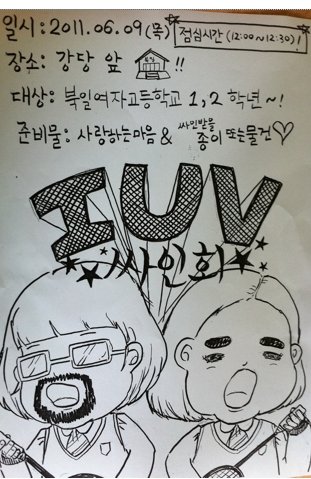 일시: 2011. 06. 09 (목) 점심시간 (12:00~12:30)!
장소: 강당 앞 !!
대상: 북일여자고등학교 1, 2 학년~!
준비물: 사랑하는마음 & 싸인받을 종이 또는 물건♡
IUV
싸인회